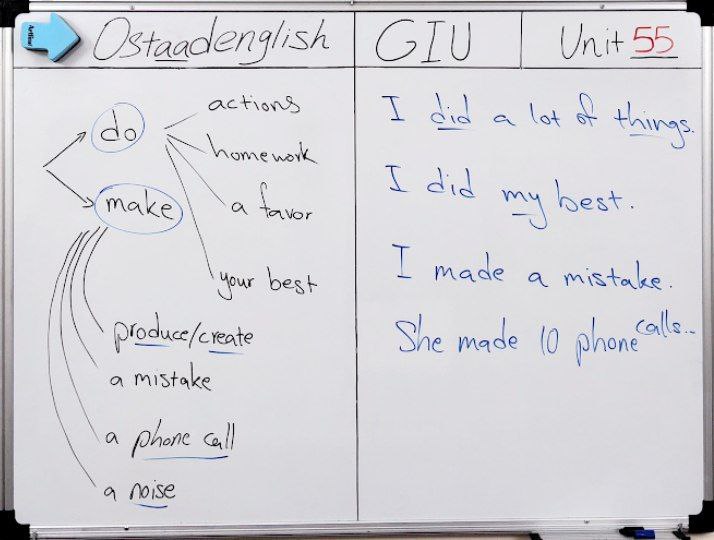 Artline
Ostaadenglish
GIU
Unit 55
do
actions
homework
a favor
your best
make
produce/create
a mistake
a phone call
a noise
I did a lot of things.
I did my best.
I made a mistake.
She made 10 phone calls...